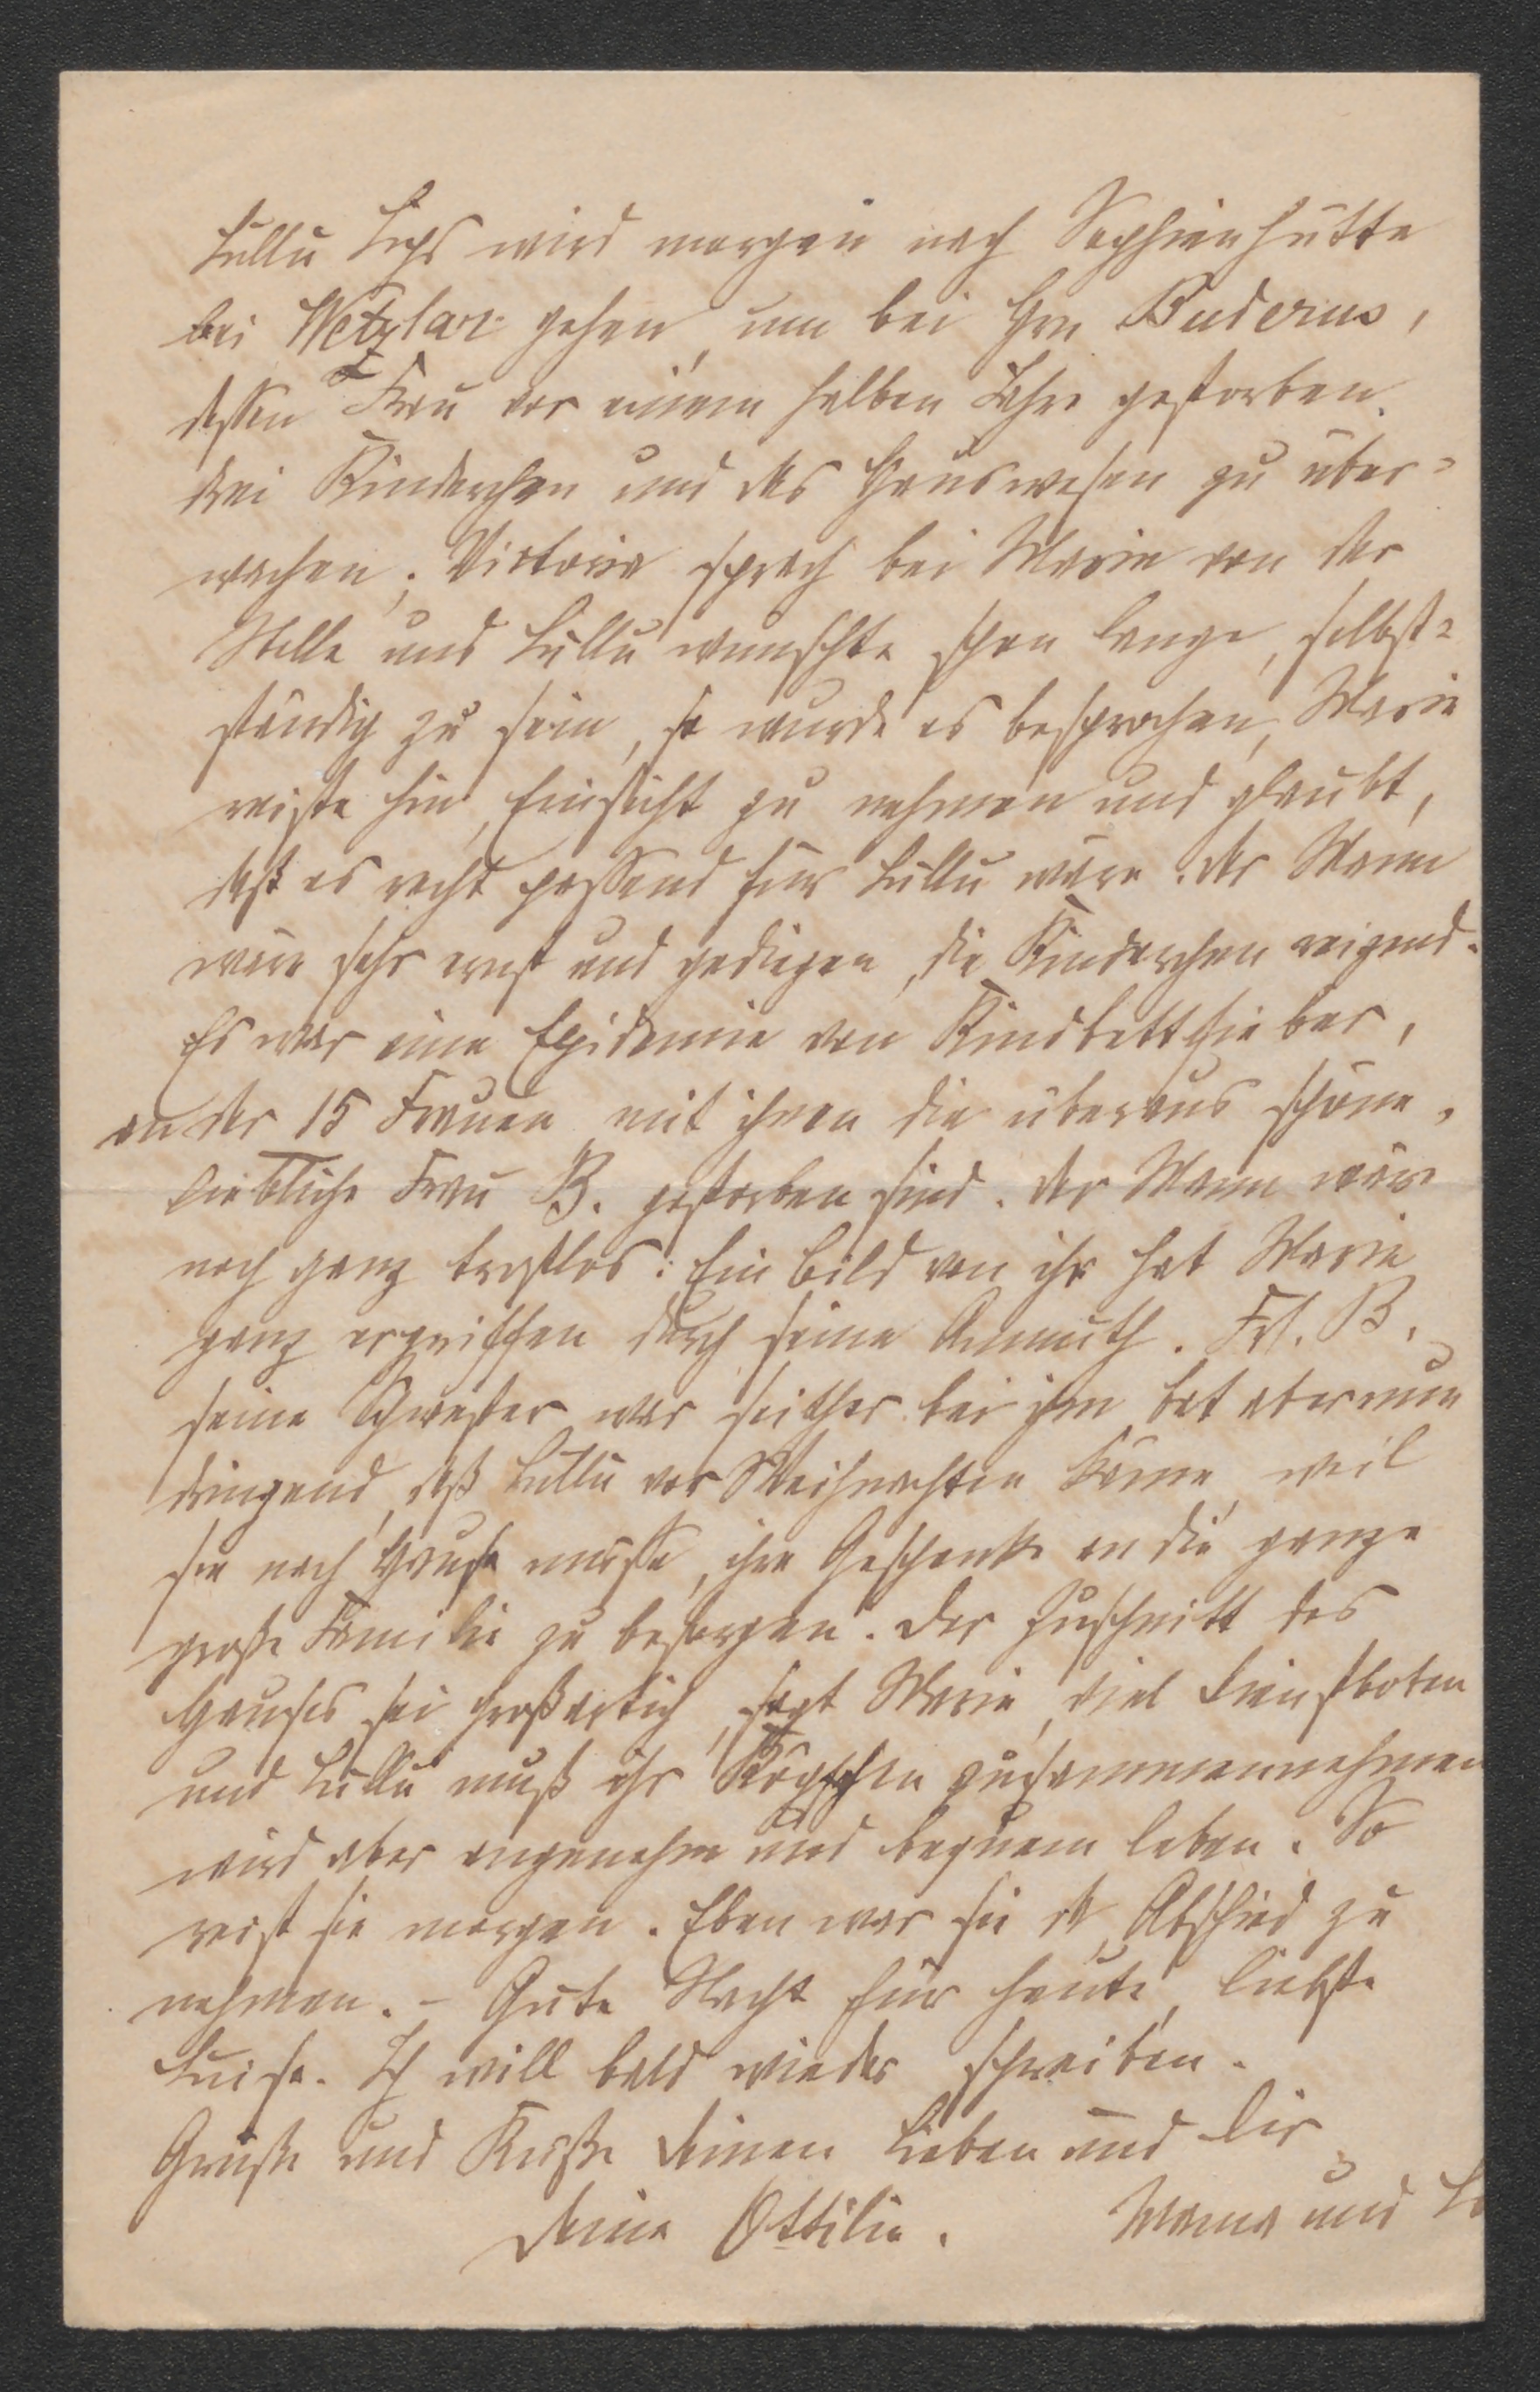 Lullu Lips wird morgen nach Sophienhütte
bei Wetzlar gehen, um bei Hrn Buderus,
dessen Frau vor einem halben Jahre gestorben,
drei Kinderchen und das Hauswesen zu über-
wachen. Victoria sprach bei Marie von der
Stelle und Lullu wünschte schon lange, selbst-
ständig zu sein, so wurde es besprochen, Marie
reiste hin, Einsicht zu nehmen und glaubt,
daß es recht passend für Lullu wäre. Der Mann
wäre sehr ernst und gediegen, die Kinderchen reizend.
Es war eine Epidemie von Kindbettfieber,
an der 15 Frauen mit ihnen die überaus schöne,
liebliche Frau B. gestorben sind. Der Mann wäre
noch ganz trostlos. Ein Bild von ihr hat Marie
ganz ergriffen durch seine Anmuth. Frl. B.
seine Schwester war seither bei ihm, bat aber nun
dringend, daß Lullu vor Weihnachten käme, weil
sie nach Hause müsse, ihre Geschenke an die ganze
große Familie zu besorgen. Der Zuschnitt des
Hauses sei großartig, sagt Marie, viel Dienstboten
und Lullu muß ihr Köpfchen zusammennehmen
wird aber angenehm und bequem leben. So
reist sie morgen. Eben war sie da, Abschied zu
nehmen. – Gute Nacht für heute, liebste
Luise. Ich will bald wieder schreiben.
Grüße und Küsse Deinen Lieben und Dir
Deine Ottilie. Mama und